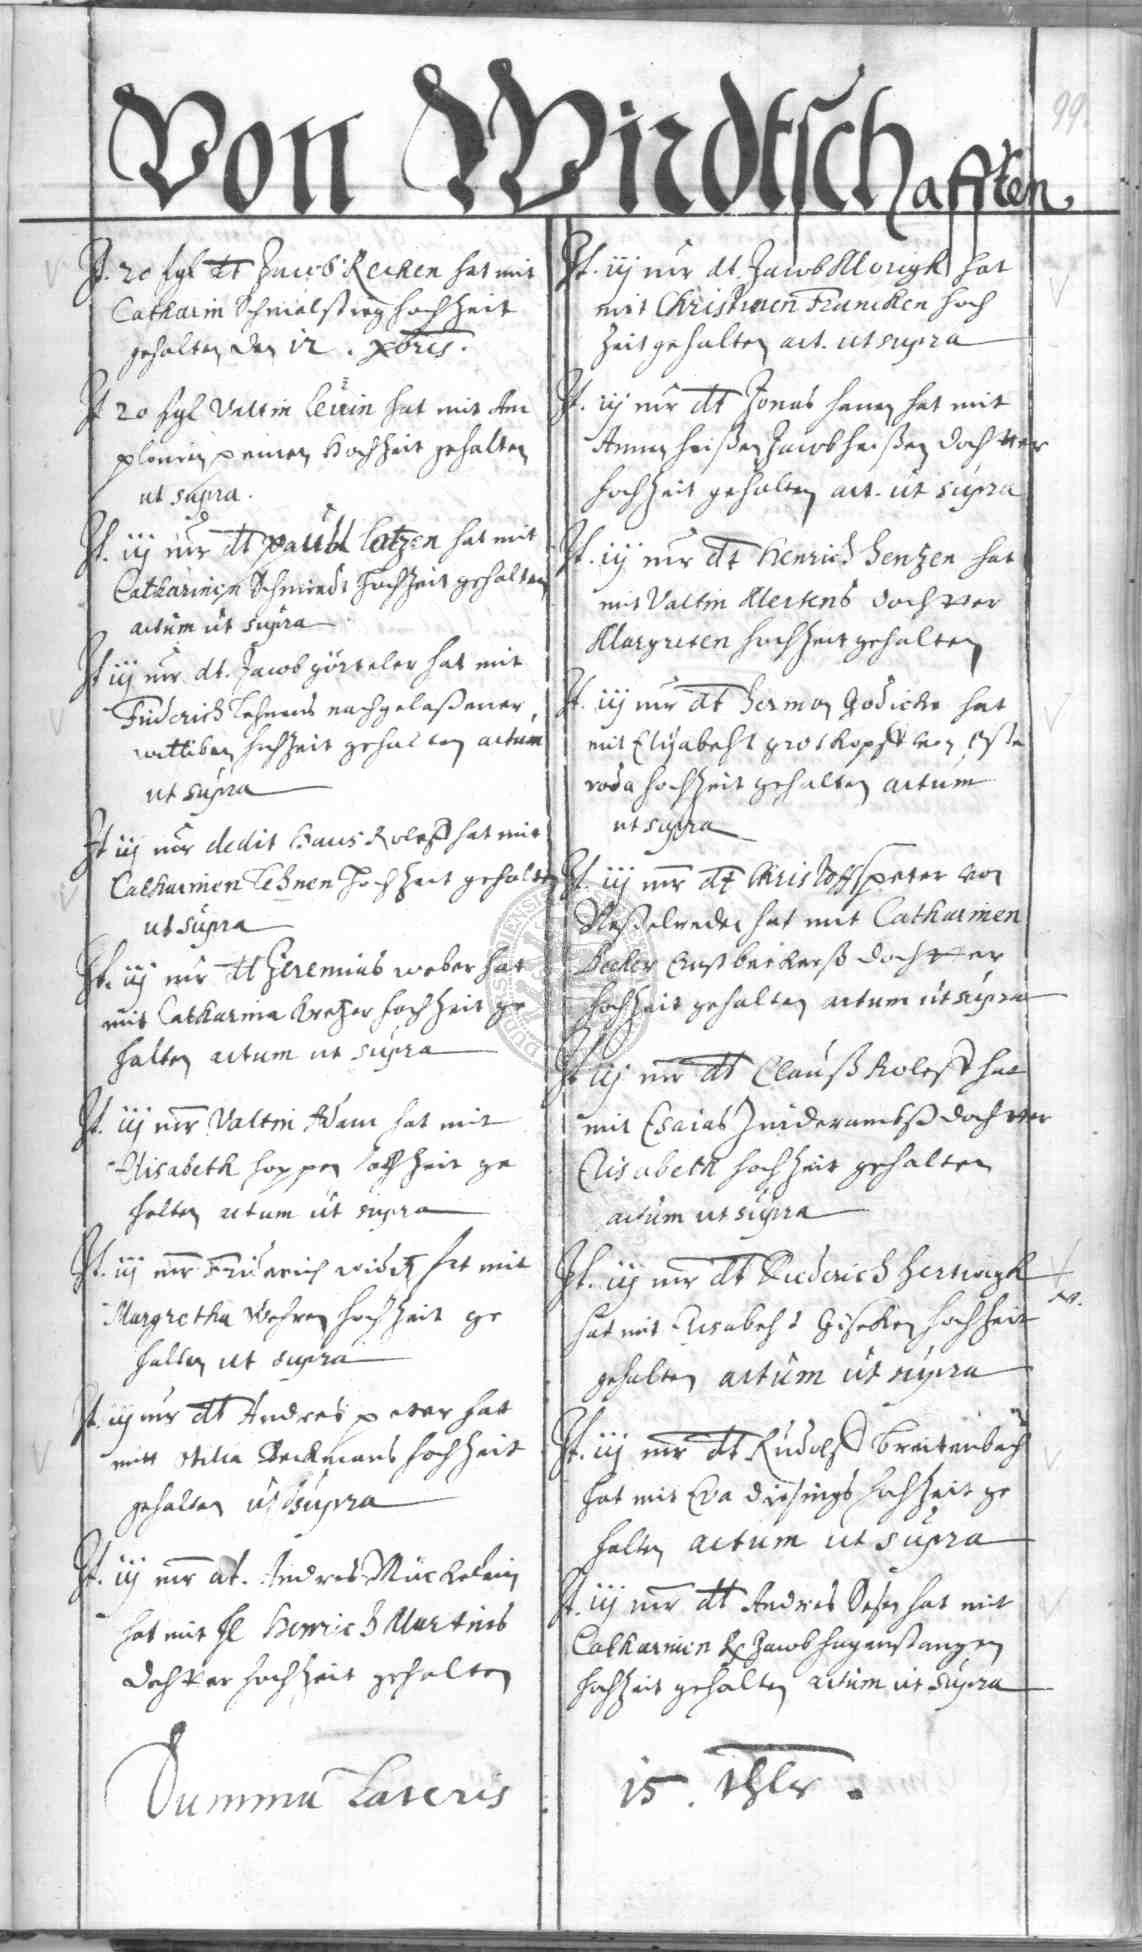 99.
Von Wirdtschafften.
It. 20 sgl dt Jacob Recken hat mit
Catharin hochzeit
gehalten den 12. xbris.
It 20 sgl Valtin Levin hat mit An
hochzeit gehalten
ut supra.
It. iij mr dt Paul Lotzen hat mit
Catharinen Schmiedt hochzeit gehalten
actum ut supra
It iij mr. dt. Jacob görteler hat mit
Friderich Lehnens nachgelaßener
wittiben hochzeit gehalten actum
ut supra
It iij mr dedit Hans Roleff hat mit
Catharinen Lehnen hochzeit gehalten
ut supra
It. iij mr dt Jeremias weber hat
mit Catharina Kretzer hochzeit ge
halten actum ut supra
It. iij mr Valtin Adam hat mit
Elisabeth hoppen hochzeit ge
halten actum ut supra
It. iij mr Friderich hat mit
Margretha Wehren hochzeit ge
halten ut supra
It. iij mr dt Andres peter hatt
mitt Otilia Beckmans hochzeit
gehalten ut supra
It. iij mr dt. Andres
hat mit Hl Henrich Martins
dochter hochzeit gehalten
Summa Lateris
It. iij mr dt. Jacob hat
mit Christinen Francken hoch
zeit gehalten act. ut supra
It. iij mr dt Jonas hanen hat mit
Annen heißen Jacob heißen dochtter
hochzeit gehalten act. ut supra
It. iij mr dt Henrich Hentzen hat
mit Valtin Mertens dochtter
Margreten hochzeit gehalten
It. iij mr dt Herman Godicke hat
mit Elisabeht grotkopff von Oste
roda hochzeit gehalten actum
ut supra
It. iij mr dt Christoff peter von
hat mit Catharinen
Becker dochtter
hochzeit gehalten actum ut supra
It iij mr dt Clauß Roleff hat
mit Esaias dochtter
Elisabeth hochzeit gehalten
actum ut supra
It. iij mr dt Diederich Hertwigk
hat mit Elisabeht Giseken hochzeit
gehalten actum ut supra
It. iij mr dt Rudolff Breitenbach
hat mit Eva hochzeit ge
halten actum ut supra
It. iij mr dt Andres hat mit
Catharinen Jacob hagenstangen
hochzeit gehalten actum ut supra
15. thlr.